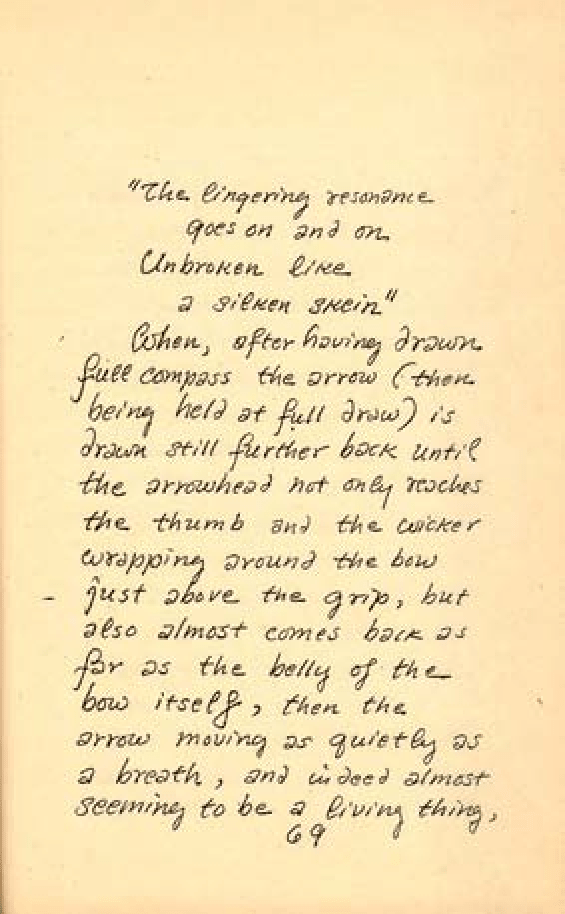 "The lingering resonance
goes on and on
Unbroken like
a silken skein"
When, after having drawn
full compass the arrow (then
being held at full draw) is
drawn still further back until
the arrowhead not only reaches
the thumb and the wicker
wrapping around the bow
just above the grip, but
also almost comes back as
far as the belly of the
bow itself, then the
arrow moving as quietly as
a breath, and indeed almost
seeming to be a living thing,
69